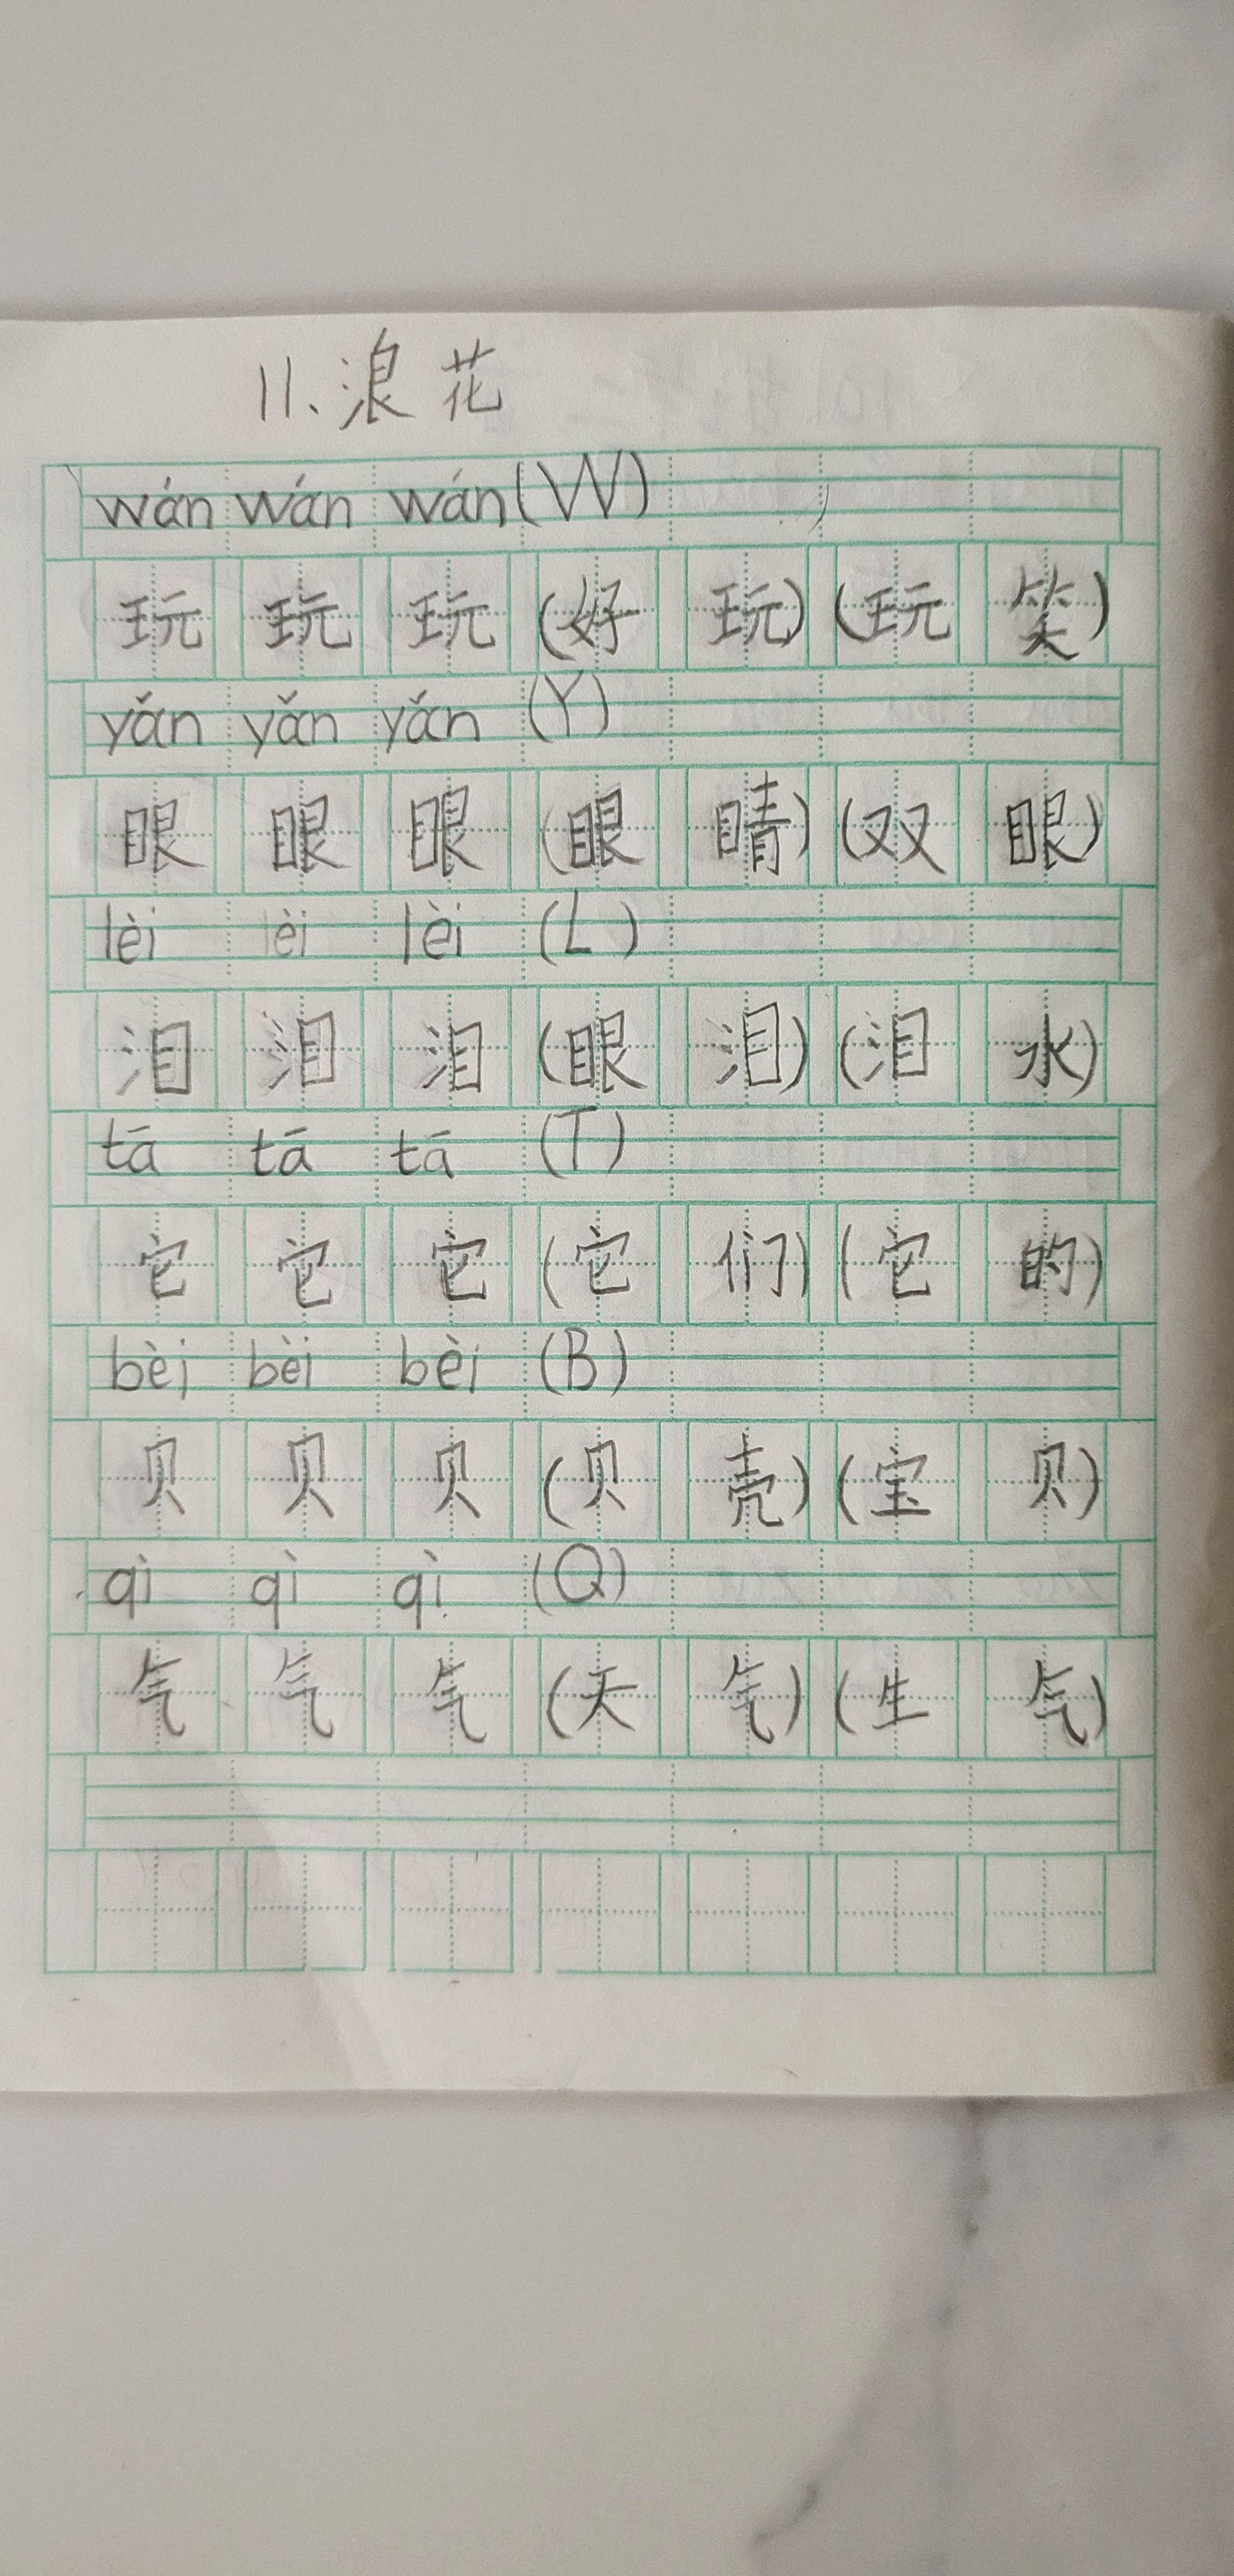 11、浪花
wán wán wán (W)
玩 玩 玩 (好玩) (玩笑)
yǎn yǎn yǎn (Y)
眼 眼 眼 (眼睛) (双眼)
lèi lèi lèi (L)
泪 泪 泪 (眼泪) (泪水)
tā tā tā (T)
它 它 它 (它们) (它的)
bèi bèi bèi (B)
贝 贝 贝 (贝壳) (宝贝)
qì qì qì (Q)
气 气 气 (天气) (生气)